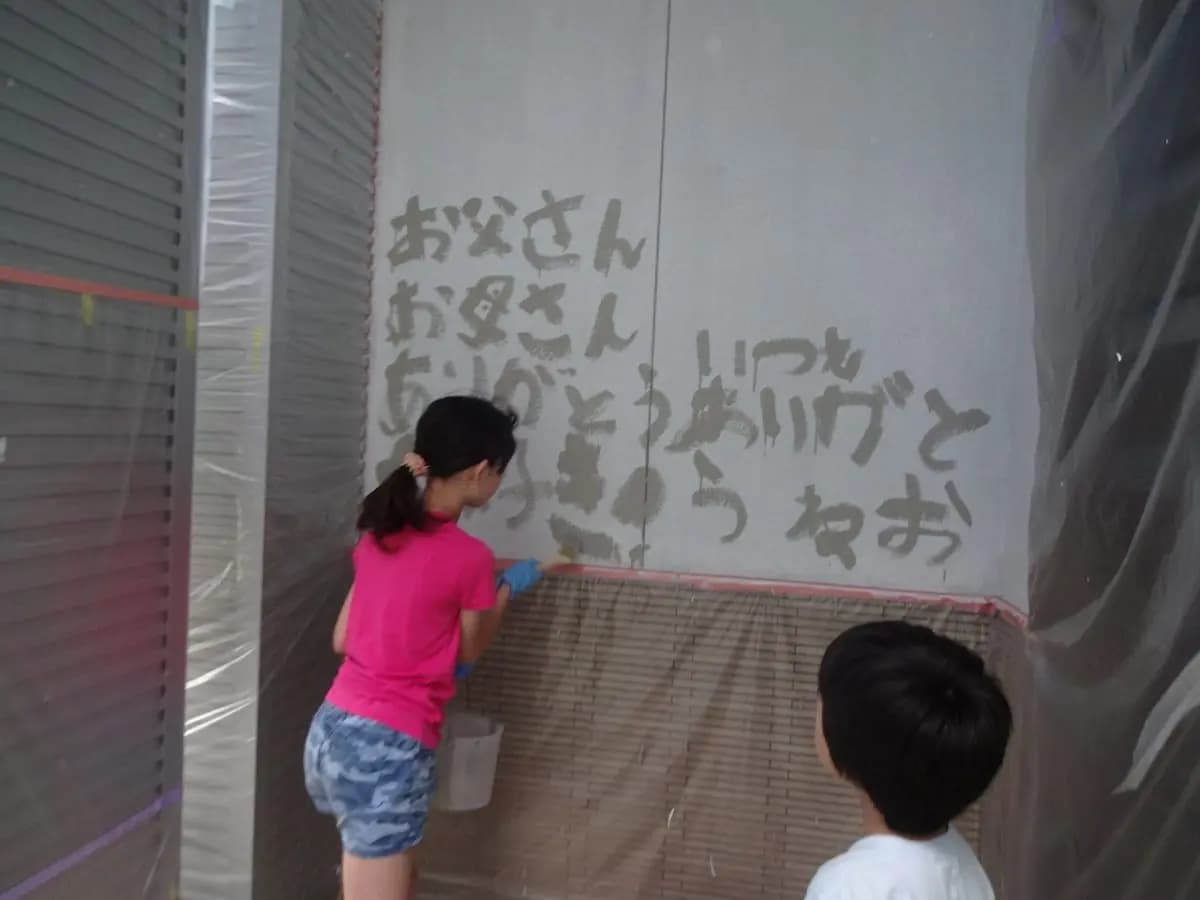 お父さん
お母さん
ありがとう
いつも
ありがと
う
ねお